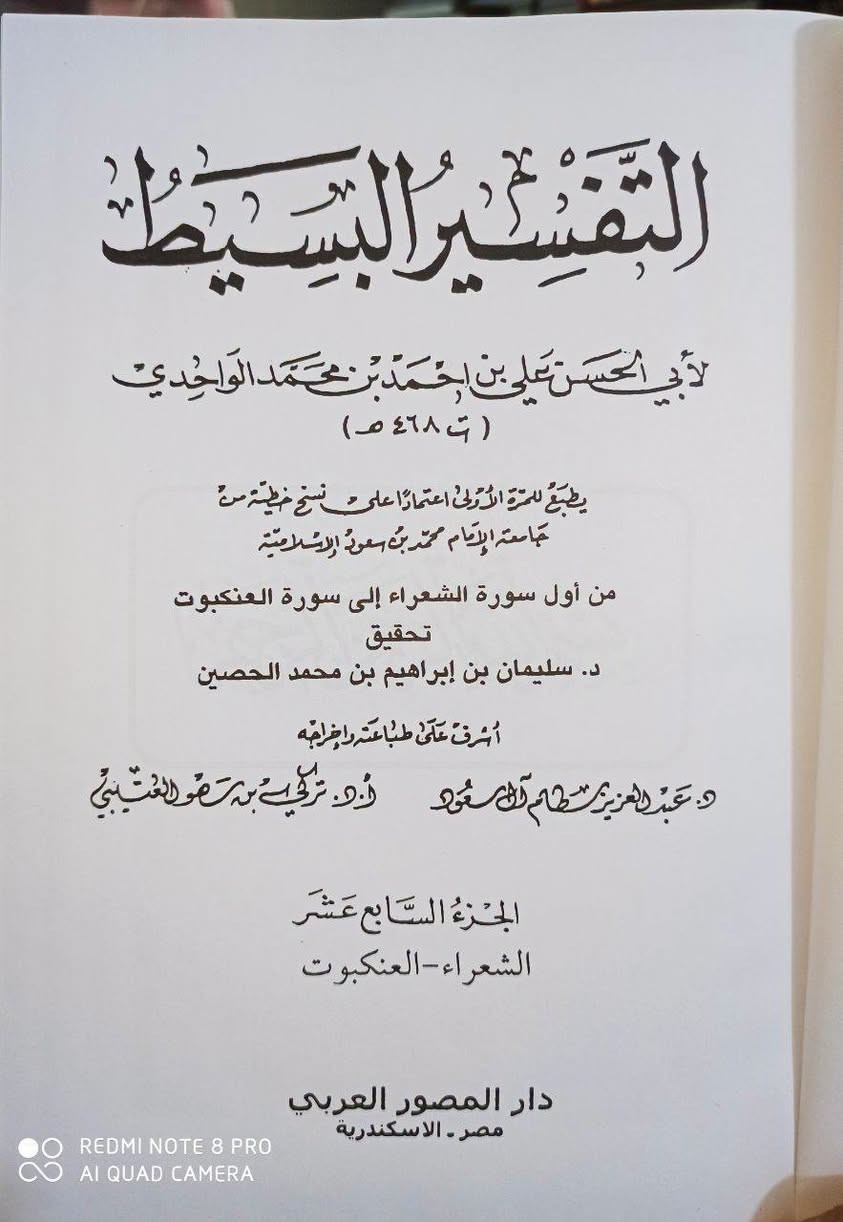 التَّفْسِيرُ البَسِيطُ
لأبي الحسَن عَلي بن احْمَد بْن محَمَّد الوَاحِدي
(ت ٤٦٨ هـ)
يطبَعُ للمرّة الأُولى اعتمادًا على نسخ خطيّة من
جَامعة الإمَام محمّد بن سعود الإسْلاميّة
من أول سورة الشعراء إلى سورة العنكبوت
تحقيق
د. سليمان بن إبراهيم بن محمد الحصين
أشرفَ عَلَى طبَاعَته وإخراجه
د. عَبْد العزيز بن سَطام آل سعُود أ.د. تركي بن سَهو العتَيبي
الجُزءُ السَّابع عَشَر
الشعراء-العنكبوت
دار المصور العربي
مصر - الاسكندرية
REDMI NOTE 8 PRO
AI QUAD CAMERA